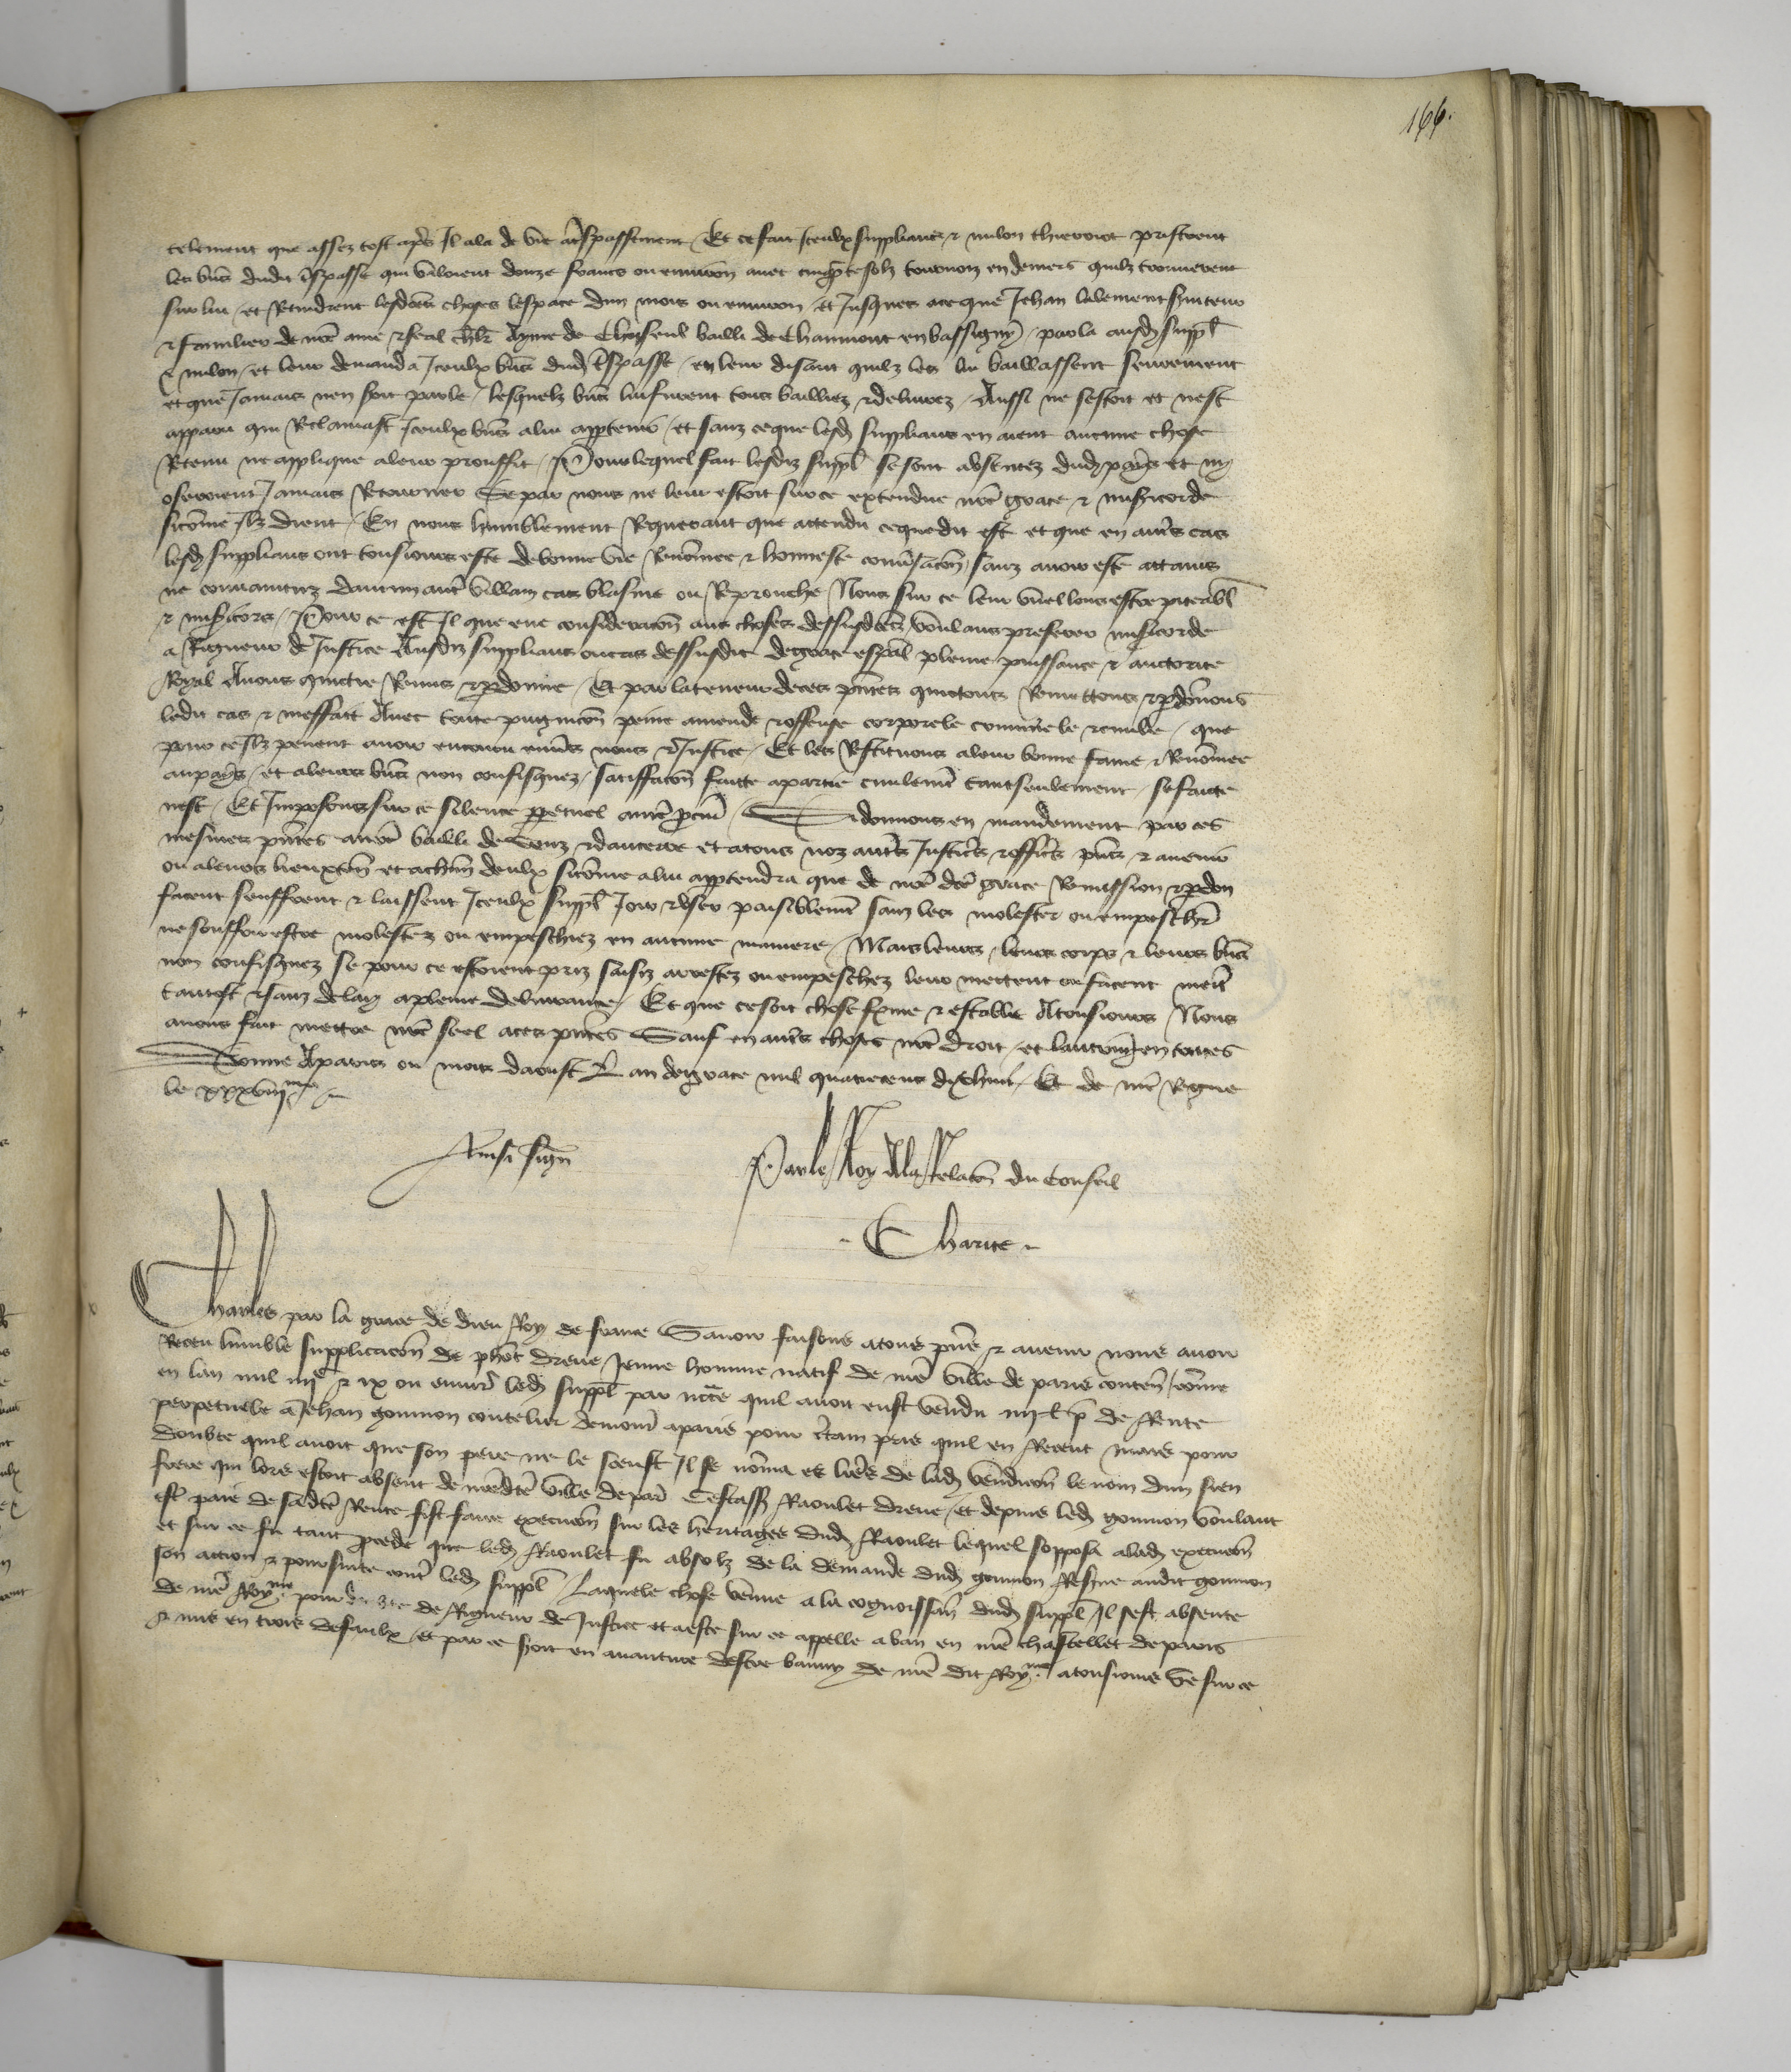 166.
telement que assez tost apres Il ala de vie a trespassement / Et ce fait Iceulx supplians & milon thierriot prisrent
les biens dudit trespasse qui valoient douze frans ou environ avec cinquante solz tournois en deniers quilz trouverent
sur lui / et Retindrent lesdictes choses lespace dun mois ou environ / et Jusques ace que Jehan lalement serviteur
& familier de nostre ame & feal chlr Ayme de Choiseul bailli de Chaumont en bassigny / parla ausd suppl
& milon / et leur demanda Iceulx biens dud trespasse / en leur disant quilz les lui baillassent seurement
et que Jamais nen seroit parole / lesquelz biens lui furent tous bailliez & delivrez / Aussi ne sestoit et nest
apparu qui Reclamast Iceulx biens alui appartenir / et sanz ce que lesd supplians en aient aucune chose
Retenu ne applique aleur prouffit / Pour lequel fait lesdiz suppl se sont absentez dud pays et ny
oseroient Jamais Retourner Se par nous ne leur estoit sur ce extendue nostre grace & misericorde
sicomme Ilz dient / En nous humblement Requerant que attendu ce que dit est et que en autres cas
lesd supplians ont tousjours este de bonne vie Renommee & honneste conversacion sanz avoir este attains
ne convaincuz daucun autre villain cas blasme ou Reprouche Nous sur ce leur vueillons estre piteabl
& misericors / Pour ce est Il que eue consideracion aus choses dessusdictes voulans preferer misericorde
a Rigueur de Justice Ausdiz supplians ou cas dessusdit de grace especial pleine puissance & auctorite
Royal Avons quictie Remis & pardonne / Et par la teneur de ces presentes quictons Remettons & pardonnons
ledit cas & meffait Avec toute pugnicion peine amende & offense corporele criminele & civile / que
pour ce Ilz pevent avoir encouru envers nous & Justice / Et les Restituons aleur bonne fame & Renommee
aupays / et aleurs biens non confisquez / satisfacion faitte apartie civilement tantseulement se faitte
nest / Et Imposons sur ce silence perpetuel anostre procureur / Si donnons en mandement par ces
mesmes presentes anostre bailli de Senz & dAucerre et atous noz autres Justiciers & officiers presens & avenir
ou aleurs lieuxtenans et achascun deulx sicomme alui appartendra que de nostre dicte grace Remission & pardon
facent seuffrent & laissent Iceulx suppl Joir & user paisiblement sanz les molester ou empescher
ne souffrir estre molestez ou empeschiez en aucune maniere / Mais leurs / leurs corps & leurs biens
non confisquez se pour ce estoient priz saisiz arrestez ou empeschez leur mettent ou facent mettre
tantost & sanz delay apleine delivrance / Et que ce soit chose ferme & estable Atousjours Nous
avons fait mettre nostre seel aces presentes Sauf en autres choses nostre droit / et lautrui en toutes
Donne Aparis ou mois daoust Lan de grace mil quatrecens dixhuit / Et de nostre Regne
le xxxviiime
Ainsi signe
Par le Roy Ala Relacion du Conseil
Charite
Charles par la grace de dieu Roy de france Savoir faisons atous presens & avenir nous avoir
Receu lumble supplicacion de phot dreue Jeune homme natif de nostre ville de paris contenant / comme
en lan mil iiiic & ix ou environ led suppl par necte quil avoit eust vendu iiii l p de Rente
perpetuele a Jehan gounion coutelier demourant aparis pour certain pris quil en Receut mais pour
doubte quil avoit que son pere ne le sceust Il se nomma es lettres de lad vendicion le nom dun sien
frere qui lors estoit absent de nostredicte ville de paris Cestassavoir Raoulet dreue / et depuis led gounion voulant
estre paie de sadicte Rente fist faire execucion sur les heritages dud Raoulet lequel sopposa alad execucion
et sur ce fu tant procede que led Raoulet fu absolz de la demande dud gounion Reserve audit gounion
son action & poursuite contre led suppl / Laquele chose venue a la cognoissance dud suppl Il sest absente
de nostre Royme pour de Rigueur de Justice et a este sur ce appelle a ban en nostre chastellet de paris
& mis en trois defaulx / et par ce soit en avanture destre banny de nostre dit Royme atousjours se sur ce